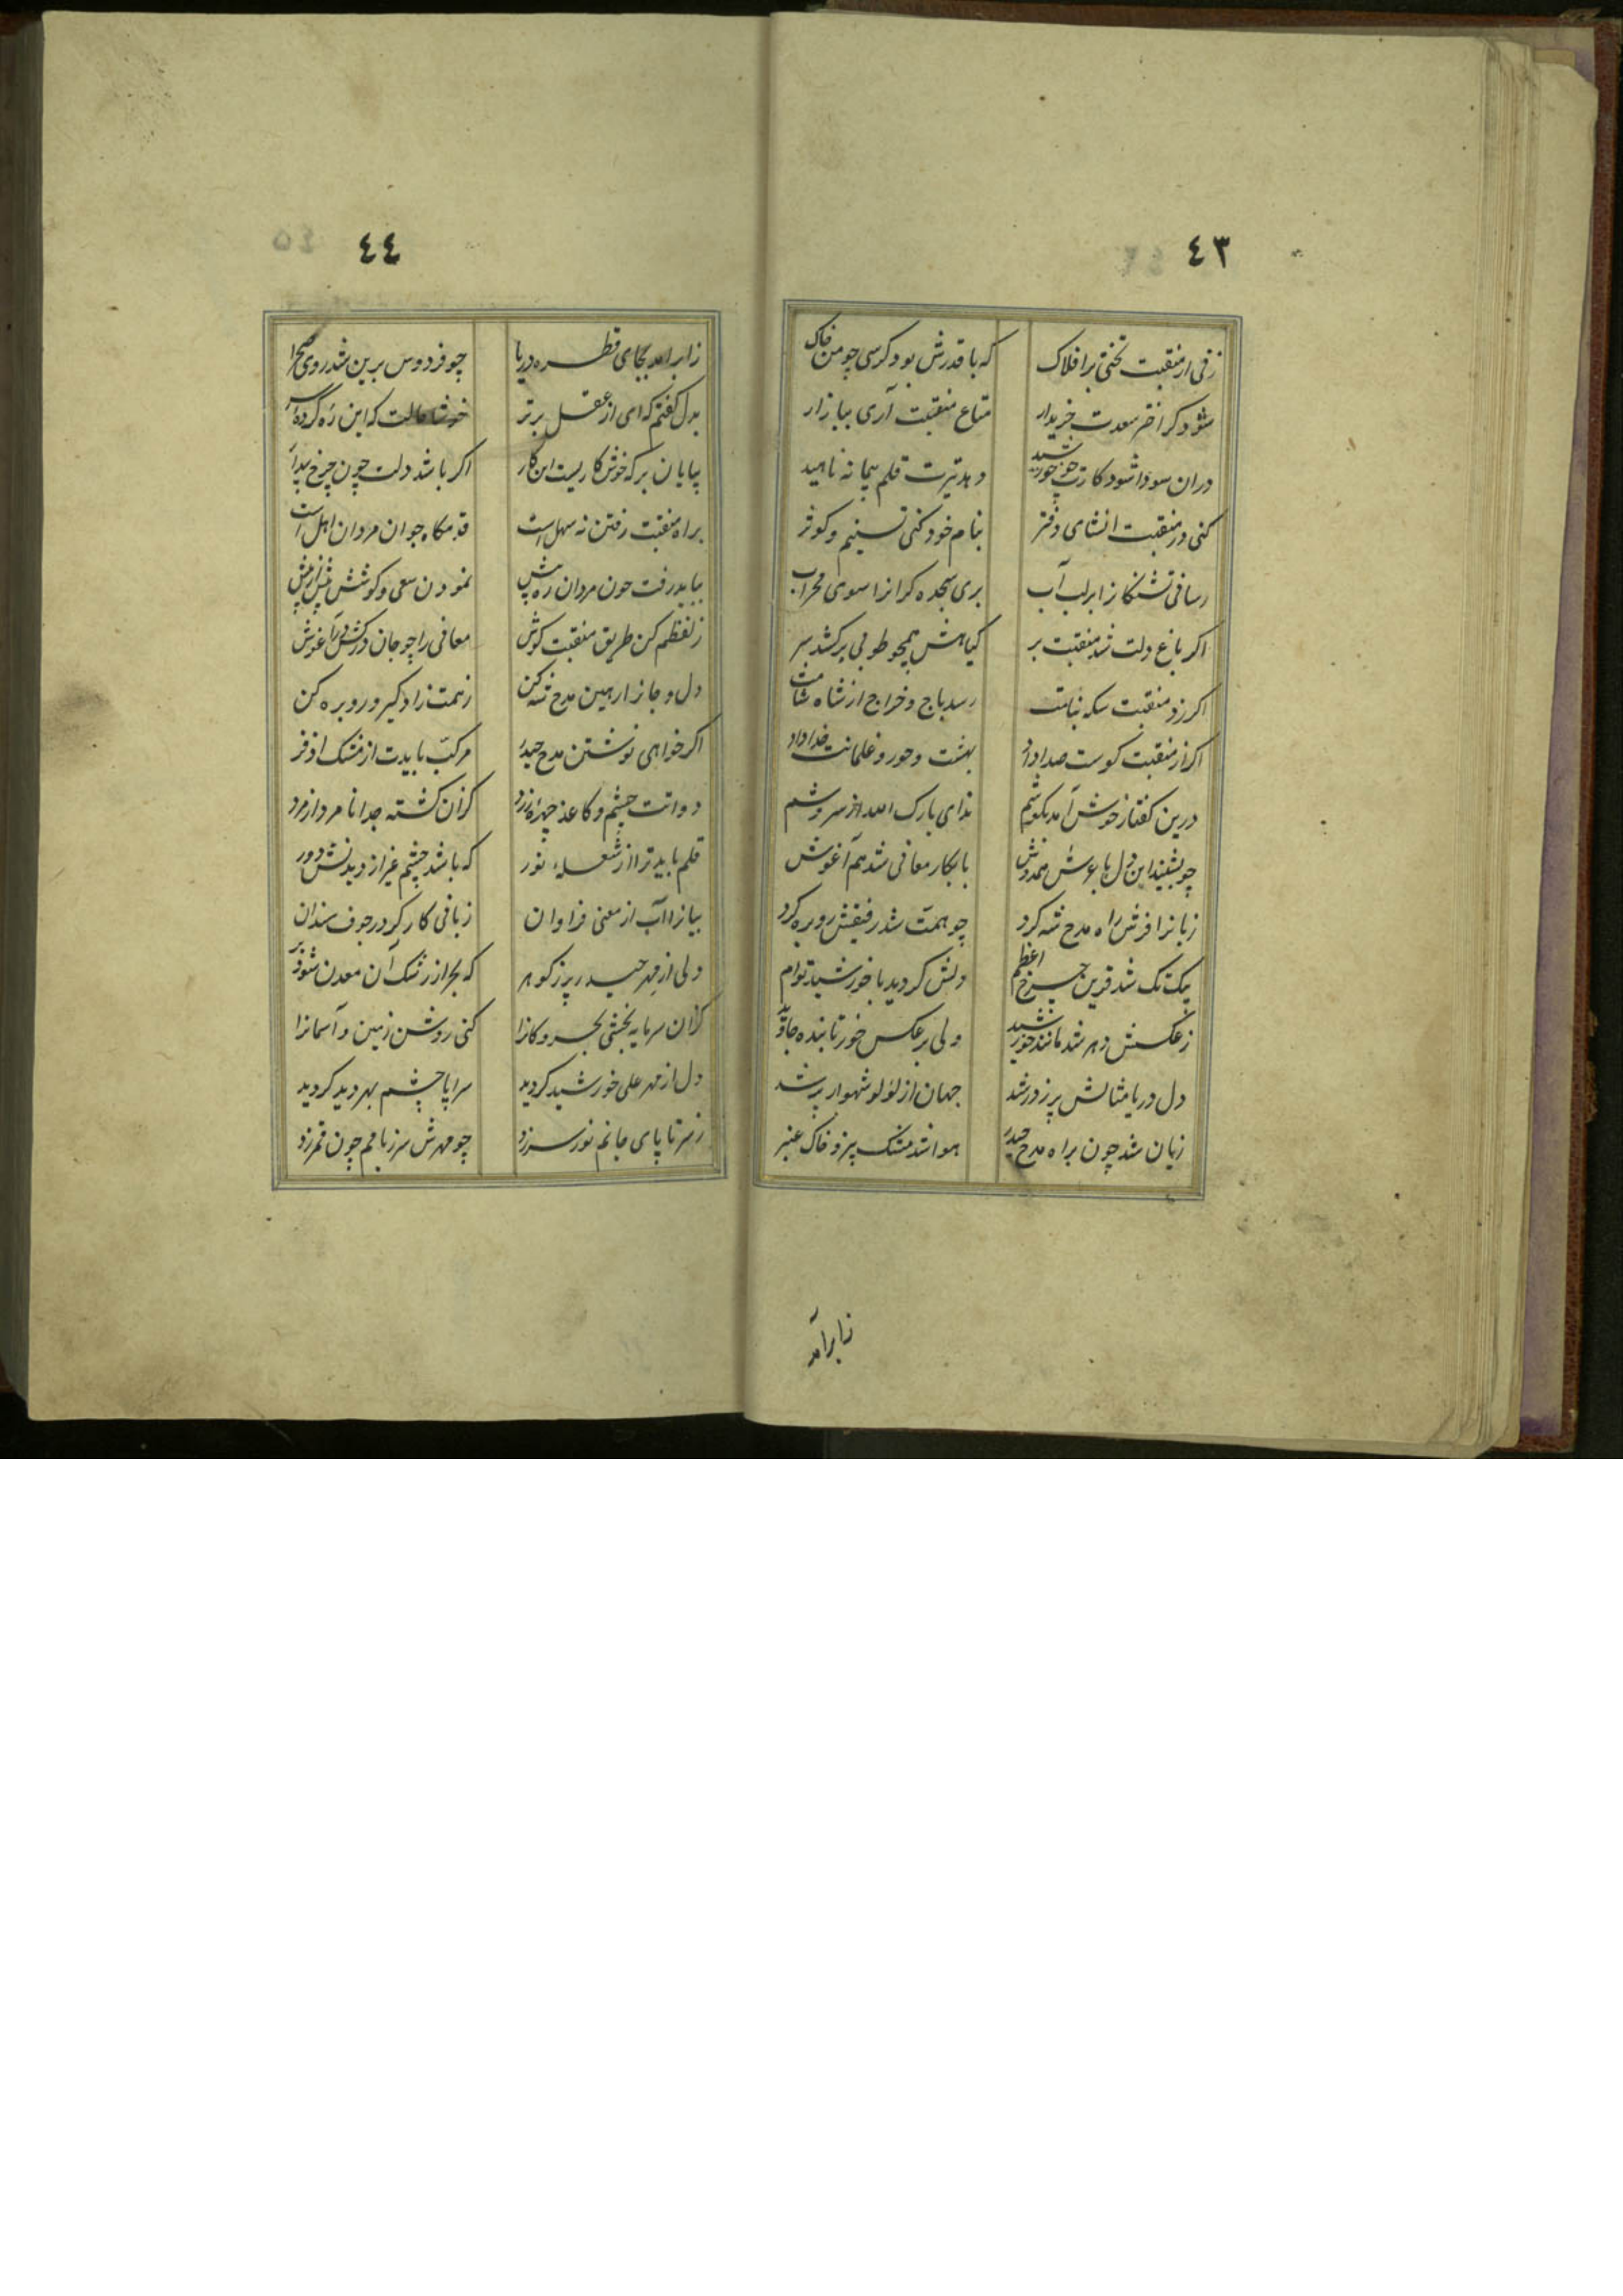 ٤٣
زنی از منقبت تختی بر افلاک که با قدرش بود کرسی چو من خاک
شود کر اختر سعدت خریدار متاع منقبت آری ببازار
دران سودا شود کارت چو خورشید دهد تیرت قلم پیمانه ناهید
کنی در منقبت انشای دفتر بنام خود کنی تسنیم و کوثر
رسانی تشنکانرا بر لب آب بری سجده کرانرا سوی محراب
اکر باغ دلت شد منقبت بر کیاهش همچو طوبی برکشد سر
اکر زد منقبت سکه بنامت رسد باج و خراج از شاه شامت
اکر از منقبت کوست صدا داد بهشت و حور و غلمانت خدا داد
درین کفتار خوش آمد بکوشم ندای بارک الله از سروشم
چو بشنید این دل با عرش همدوش بابکار معانی شد هم آغوش
زبانرا فرش راه مدح شه کرد چو همت شد رفیقش رو بره کرد
بیک تک شد قرین چرخ اعظم دلش کردید با خورشید توام
ز عکسش دهر شد مانند خورشید ولی بر عکس خور تابنده جاوید
دل دریا مثالش پر ز در شد جهان از لؤلؤ شهوار پر شد
زبان شد چون براه مدح حیدر هوا شد مشک بیز و خاک عنبر
زابر آمد
٤٤
زابر آمد بجای قطره دریا چو فردوس برین شد روی صحرا
بدل کفتم که ای از عقل برتر خوشا حالت که این ره کرده سر
بپایان بر که خوش کاریست این کار اکر باشد دلت چون چرخ بیدار
براه منقبت رفتن نه سهل است قدمکاه جوان مردان اهل است
بباید رفت چون مردان ره پیش نمودن سعی و کوشش بیش از پیش
ز لفظم کن طریق منقبت کوش معانی را چو جان در کش در آغوش
دل و جانرا رهین مدح شه کن ز همت زاد کیر و رو بره کن
اکر خواهی نوشتن مدح حیدر مرکب بایدت از مشک اذفر
دواتت چشم و کاغذ چهره زرد کزان کشته جدا نامرد از مرد
قلم باید ترا از شعله نور که باشد چشم غیر از دیدنش دور
بیانرا آب از معنی فراوان زبانی کارکر در جوف سندان
دلی از مهر حیدر پر ز کوهر که بحر از رشک آن معدن شود بر
کزان سرمایه بخشی بحر و کانرا کنی روشن زمین و آسمانرا
دل از مهر علی خورشید کردید سراپا چشم بهر دید کردید
ز سر تا پای جانم نور سر زد چو مهرش سر ز بامم چون قمر زد